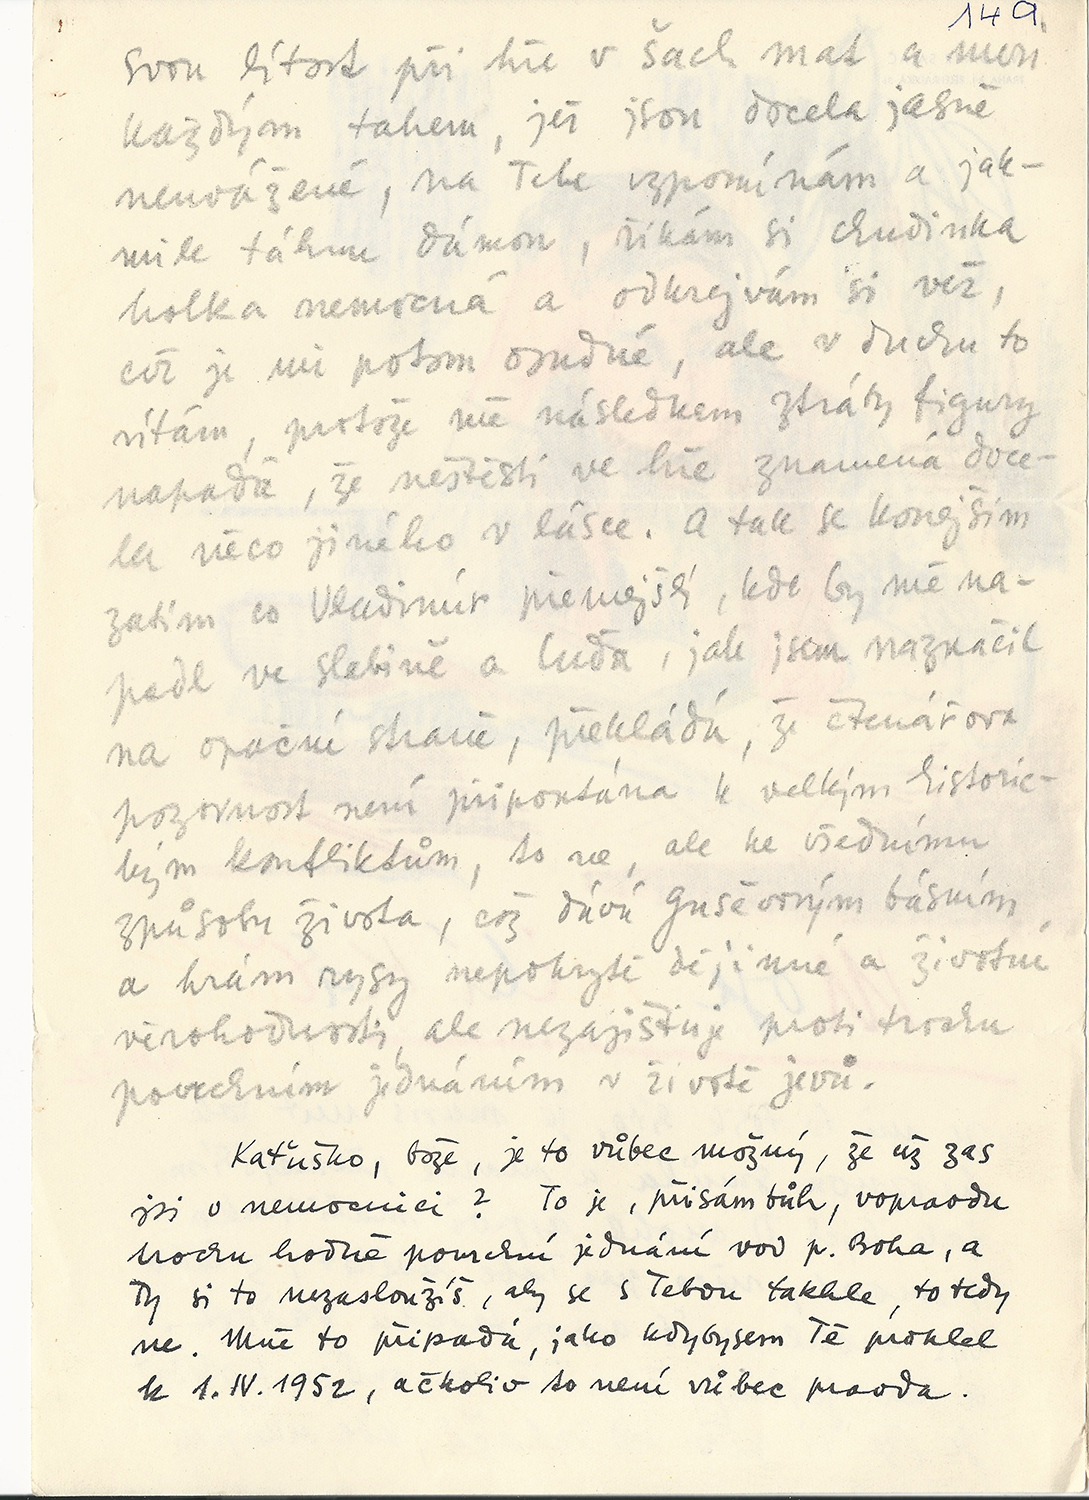 149.
svou lítost při hře v šach mat a nad
každým tahem, jež jsou docela jasně
neuvážené, na Tebe vzpomínám a jak-
mile táhnu dámou, říkám si chudinka
holka nemocná a odkrejvám si věž,
což je mi potom osudné, ale v duchu to
vítám, protože mě následkem ztráty figury
napadá, že neštěstí ve hře znamená doce-
la něco jiného v lásce. A tak se konejším
zatím co Vladimír přemejšlí, kde by mě na-
padl ve slabině a Luďa, jak jsem naznačil
na opační straně, překládá, že čtenářova
pozornost není připoutána k velkým historic-
kým konfliktům, to ne, ale ke všednímu
způsobu života, což dává Gusevovým básním
a hrám rysy nepokryté dějinné a životné
věrohodnosti, ale nezajišťuje proti trochu
povrchním jednáním v životě jevů.
Kaťuško, bože, je to vůbec možný, že už zas
jsi v nemocnici? To je, přisámbůh, vopravdu
trochu hodně povrchní jednání vod p. Boha, a
Ty si to nezasloužíš, aby se s Tebou takhle, to tedy
ne. Mně to připadá, jako kdybysem Tě proklel
k 1. IV. 1952, ačkoliv to není vůbec pravda.